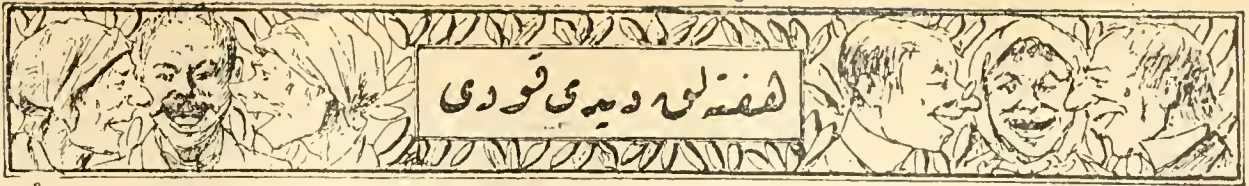 هفته لق ديدی قودی